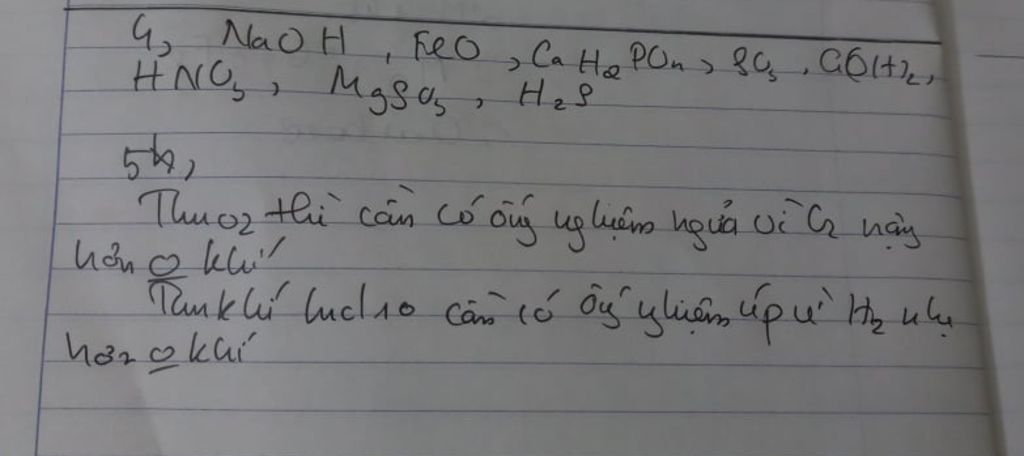 4, NaOH, FeO, CaH2PO4, SO3, C(OH)2,
HNO3, MgSO3, H2S
5,
Thu O2 thì cần có ống nghiệm ngửa vì O2 nặng
hơn o khí
Thu khí hidro cần có ống nghiệm úp vì H2 nhẹ
hơn o khí